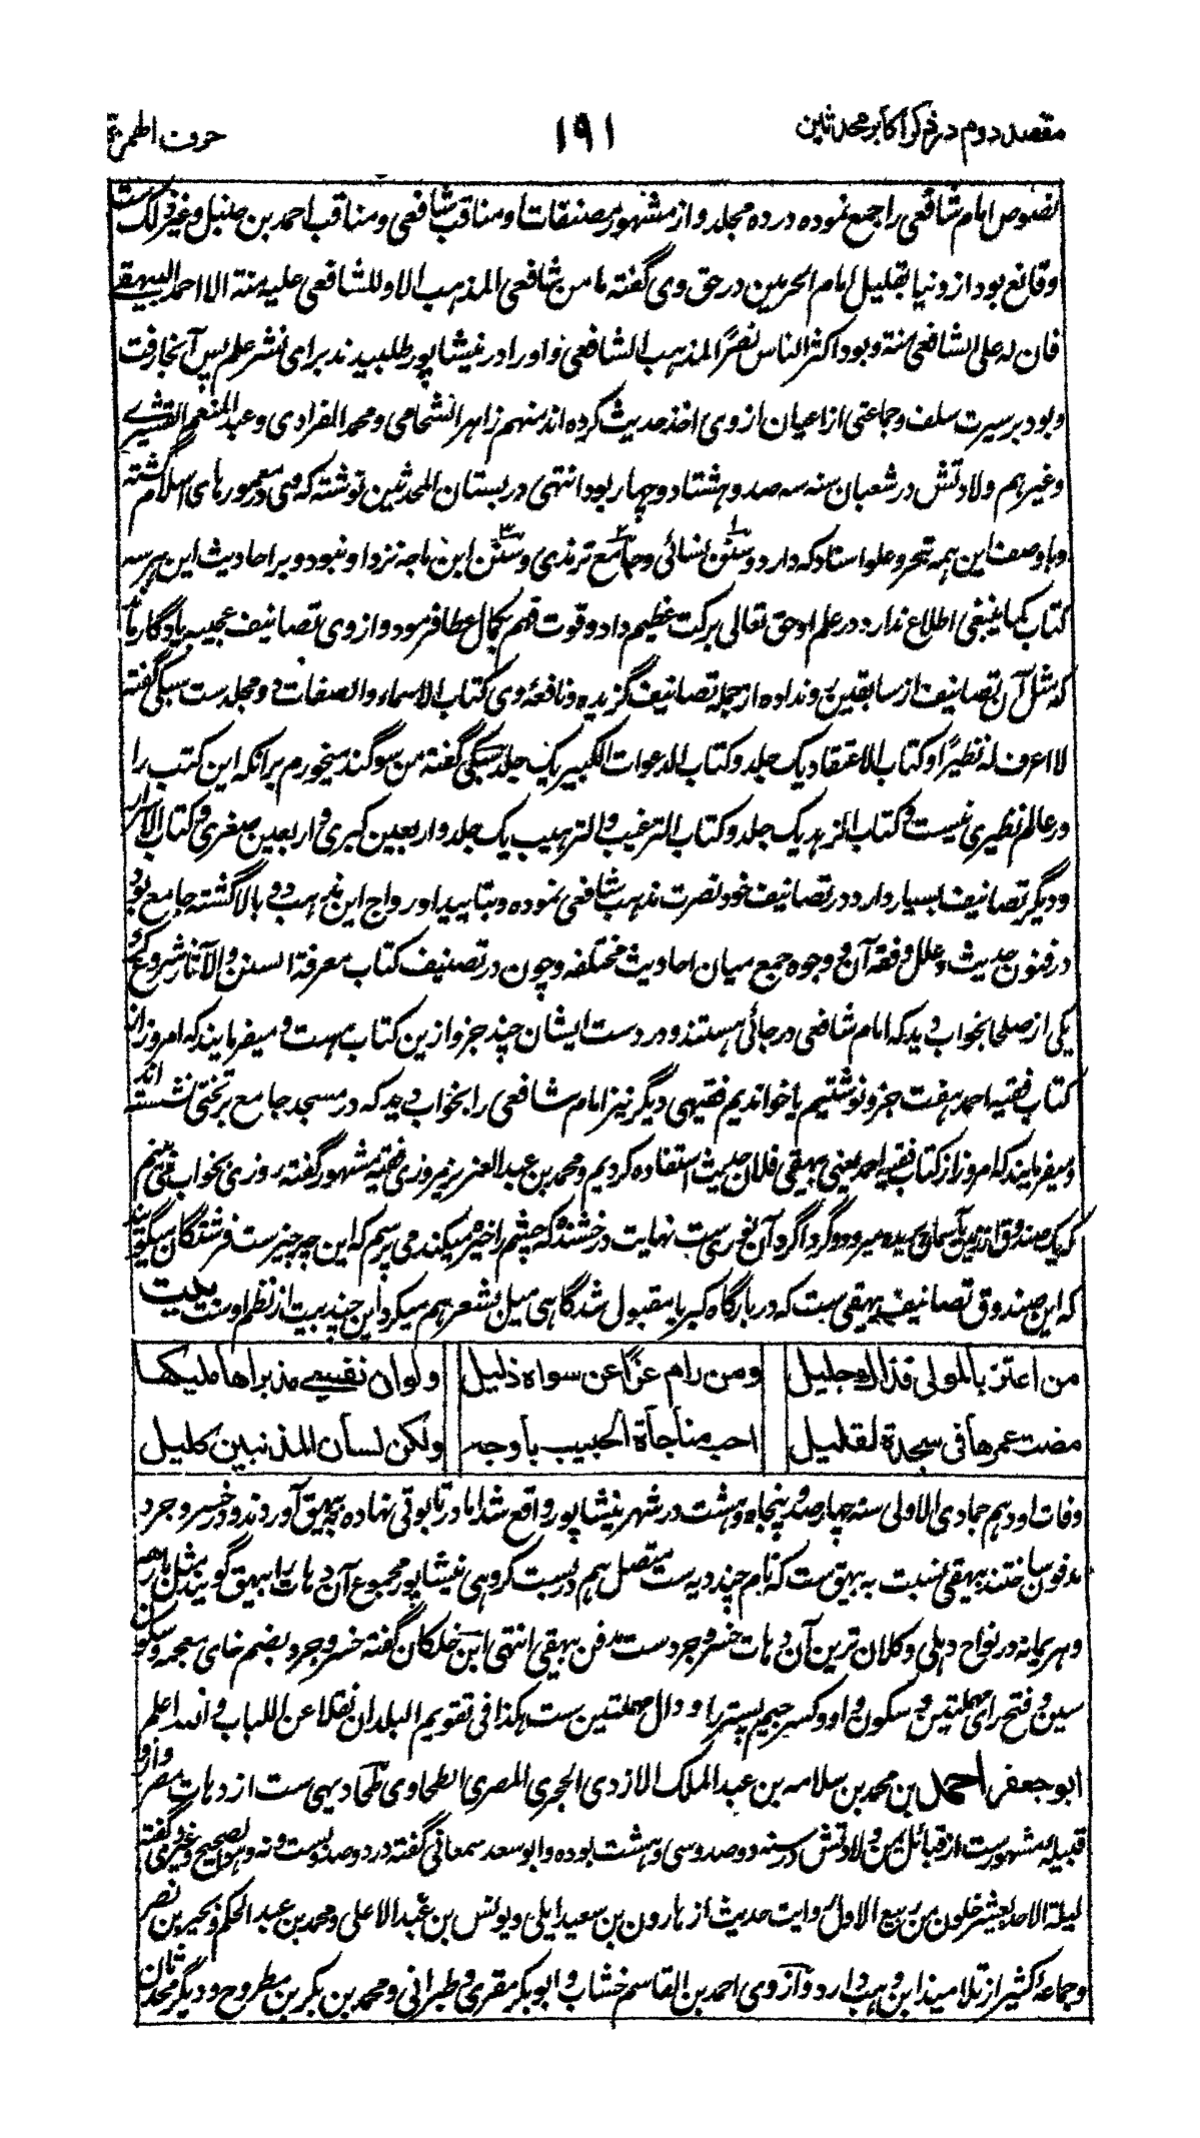 مقصد دوم در ذکر اکابر محدثین
۱۹۱
حرف الهمزة
نصوص امام شافعی را جمع نموده در ده مجلد و از مشهور مصنفات او مناقب شافعی و مناقب احمد بن حنبل و غیر ذلک ست
و قانع بود از دنیا بقلیل امام الحرمین در حق وی گفته ما من شافعی المذهب الا و للشافعی علیه منة الا احمد البیهقی
فان له علی الشافعی منة و بود اکثر الناس نصرًا لمذهب الشافعی و او را در نیشاپور طلبیدند برای نشر علم پس آنجا رفت
و بود بر سیرت سلف و جماعتی از اعیان از وی اخذ حدیث کرده اند منهم زاهر الشحامی و محمد الفرادی و عبد المنعم القشیری
و غیرهم ولادتش در شعبان سنه سه صد و هشتاد و چهار بود انتهی در بستان المحدثین نوشته که وی در معمورهای اسلام گشته
و با وصف این همه تبحر و علو اسناد که دارد سنن نسائی و جامع ترمذی و سنن ابن ماجه نزد او نبود و بر احادیث این هر سه
کتاب کما ینبغی اطلاع ندارد در علم او حق تعالی برکت عظیم داد و قوت فهم بکمال عطا فرمود و از وی تصانیف عجیبه یادگار ماند
که مثل آن تصانیف از سابقین رو نداده از جمله تصانیف گزیده و نافعه وی کتاب الاسماء و الصفات دو مجلد ست سبکی گفته
لا اعرف له نظیرًا و کتاب الاعتقاد یک جلد و کتاب الدعوات الکبیر یک جلد سبکی گفته من سوگند میخورم بر آنکه این کتب را
در عالم نظیری نیست و کتاب الزهد یک جلد و کتاب الترغیب و الترهیب یک جلد و اربعین کبری و اربعین صغری و کتاب الاسرار
و دیگر تصانیف بسیار دارد در تصانیف خود نصرت مذهب شافعی نموده و بتایید او رواج این مذهب دو بالا گشته جامع بود
در فنون حدیث و علل و فقه آن و وجوه جمع میان احادیث مختلفه و چون در تصنیف کتاب معرفة السنن و الآثار شروع کرد
یکی از صلحا بخواب دید که امام شافعی در جائی هستند و در دست ایشان چند جزو ازین کتاب هست و میفرمایند که امروز از
کتاب فقیه احمد هفت جزو نوشتیم یا خواندیم فقیهی دیگر نیز امام شافعی را بخواب دید که در مسجد جامع بر تختی نشسته اند
و میفرمایند که امروز از کتاب فقیه احمد یعنی بیهقی فلان حدیث استفاده کردیم و محمد بن عبد العزیز مروزی فقیه مشهور گفته روزی بخواب می بینم
که یک صندوق از زمین بآسمان پریده میرود و گرداگرد آن نوری ست نهایت درخشنده که چشم را خیره میکند می پرسم که این چه چیز ست فرشتگان میگویند
که این صندوق تصانیف بیهقی ست که در بارگاه کبریا مقبول شد گاهی میل بشعر هم میکرد این چند بیت از نظم اوست بیت
من اعتز بالمولی فذاک جلیل ومن رام عزًّا عن سواه ذلیل ولو ان نفسی مذ براها ملیکها
مضت عمرها فی سجدة لقلیل احب مناجاة الحبیب بأوجه ولکن لسان المذنبین کلیل
وفات او دهم جمادی الاولی سنه چهار صد و پنجاه و هشت در شهر نیشاپور واقع شد اما در تابوتی نهاده به بیهق آوردند و در خسروجرد
مدفون ساختند بیهقی نسبت به بیهق ست که نام چند دیه ست متصل هم در بست کروهی نیشاپور مجموع آن دهات را بیهق گویند مثل
و هریانه در نواح دهلی و کلان ترین آن دهات خسروجرد ست مدفن بیهقی انتهی ابن خلکان گفته خسروجرد بضم خای معجمه و سکون
سین و فتح رای مهملتین و سکون واو و کسر جیم پستر را و دال مهملتین ست هکذا فی تقویم البلدان نقلا عن اللباب و الله اعلم
ابو جعفر احمد بن محمد بن سلامه بن عبد الملک الازدی الحجری المصری الطحاوی طحا دیهی ست از دهات مصر و ازد
قبیله مشهور ست از قبائل یمن ولادتش در سنه دو صد و سی و هشت بوده و ابو سعد سمعانی گفته در دو صد و بست و نه و هو الصحیح و غیری گفته
لیلة الاحد لعشر خلون من ربیع الاول روایت حدیث از هارون بن سعید ایلی و یونس بن عبد الاعلی و محمد بن عبد الحکم و بحیر بن نصر
و جماعه کثیر از تلامیذ ابن وهب دارد و از وی احمد بن القاسم خشاب و ابو بکر مقری و طبرانی و محمد بن بکر بن مطروح و دیگر محدثان